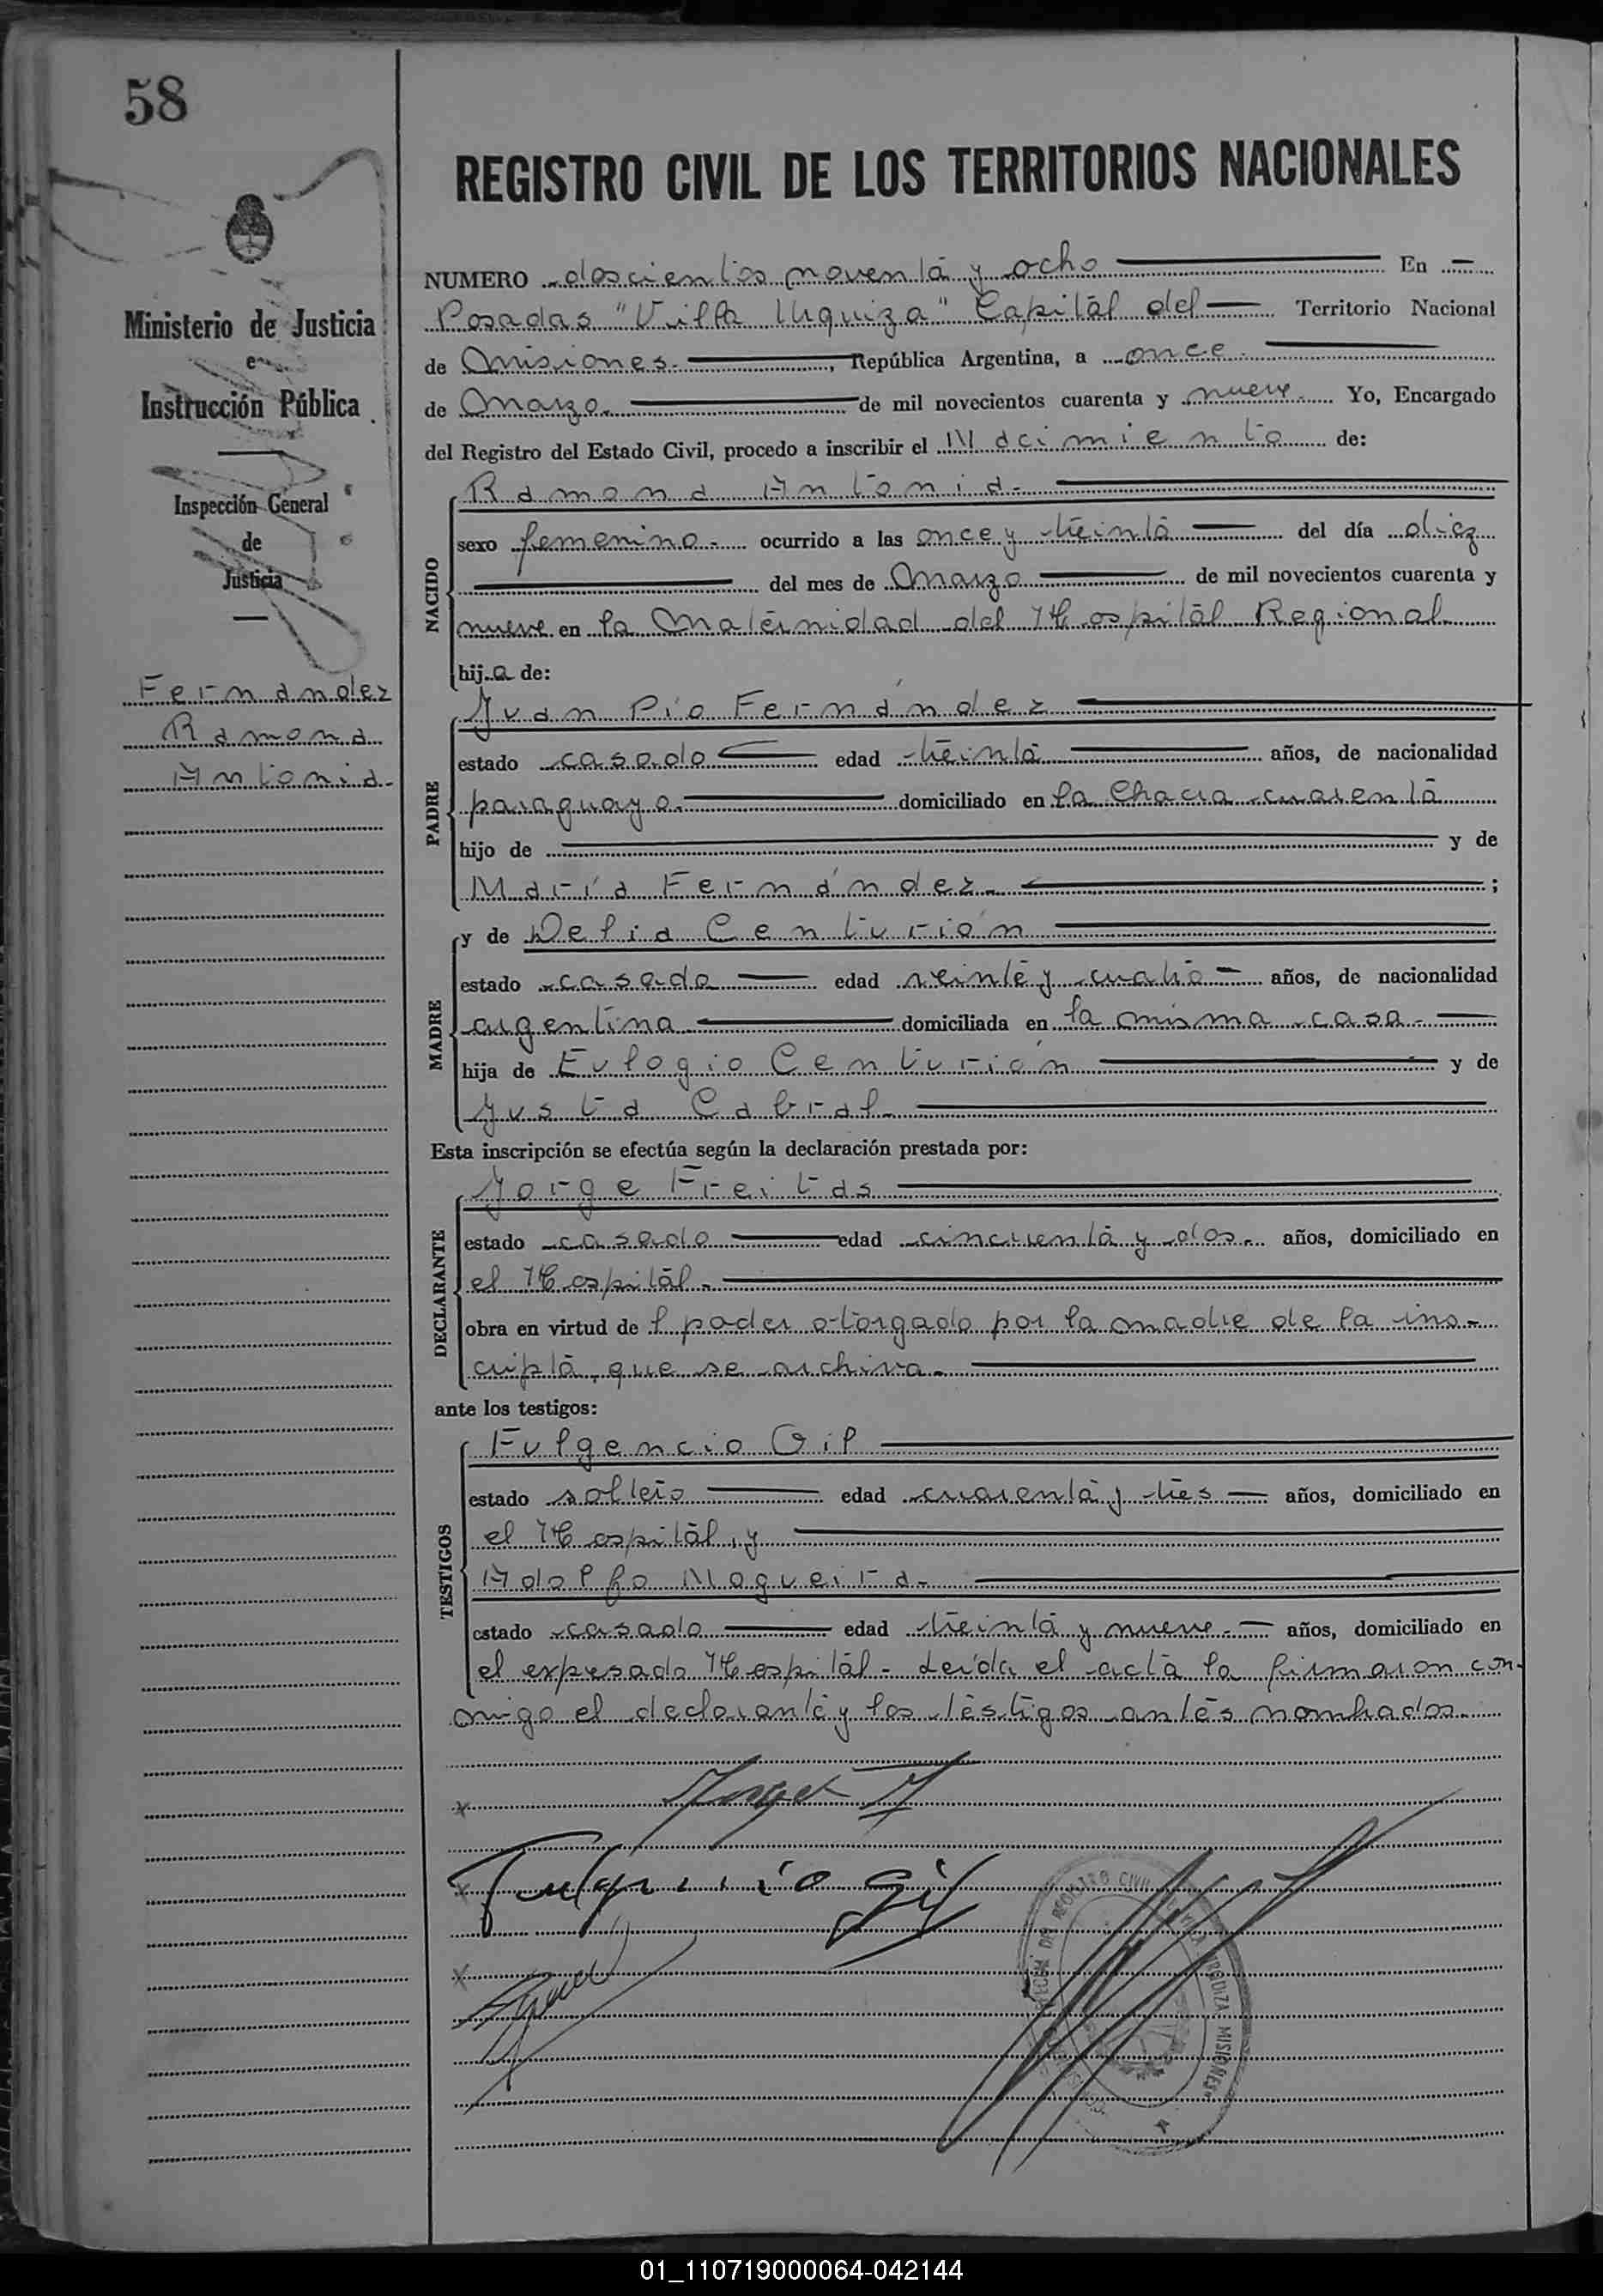 58
REGISTRO CIVIL DE LOS TERRITORIOS NACIONALES
Ministerio de Justicia
e
Instrucción Pública
Inspección General
de
Justicia
Fernández
Ramona
Antonia.-
NUMERO doscientos noventa y ocho En
Posadas "Villa Urquiza" Capital del Territorio Nacional
de Misiones.-, República Argentina, a once
de Marzo de mil novecientos cuarenta y nueve. Yo, Encargado
del Registro del Estado Civil, procedo a inscribir el Nacimiento de:
NACIDO
Ramona Antonia.-
sexo femenino.- ocurrido a las once y treinta del día diez
del mes de Marzo de mil novecientos cuarenta y
nueve en la Maternidad del Hospital Regional
hija de:
PADRE
Juan Pío Fernández
estado casado edad treinta años, de nacionalidad
paraguayo.- domiciliado en la Chacra cuarenta
hijo de y de
María Fernández.- ;
MADRE
y de Delia Centurión
estado casada edad veinte y cuatro años, de nacionalidad
argentina domiciliada en la misma casa.-
hija de Eulogio Centurión y de
Justa Cabral.-
Esta inscripción se efectúa según la declaración prestada por:
DECLARANTE
Jorge Freitas
estado casado edad cincuenta y dos.- años, domiciliado en
el Hospital.-
obra en virtud de l poder otorgado por la madre de la ins-
cripta, que se archiva.-
ante los testigos:
TESTIGOS
Fulgencio Gil
estado soltero edad cuarenta y tres años, domiciliado en
el Hospital, y
Adolfo Nogueira.-
estado casado edad treinta y nueve.- años, domiciliado en
el expesado Hospital.- Leída el acta la firmaron con-
migo el declarante y los testigos antes nombrados.-
x
x Fulgencio Gil
x
REGISTRO CIVIL
URQUIZA MISIONES
01_110719000064-042144